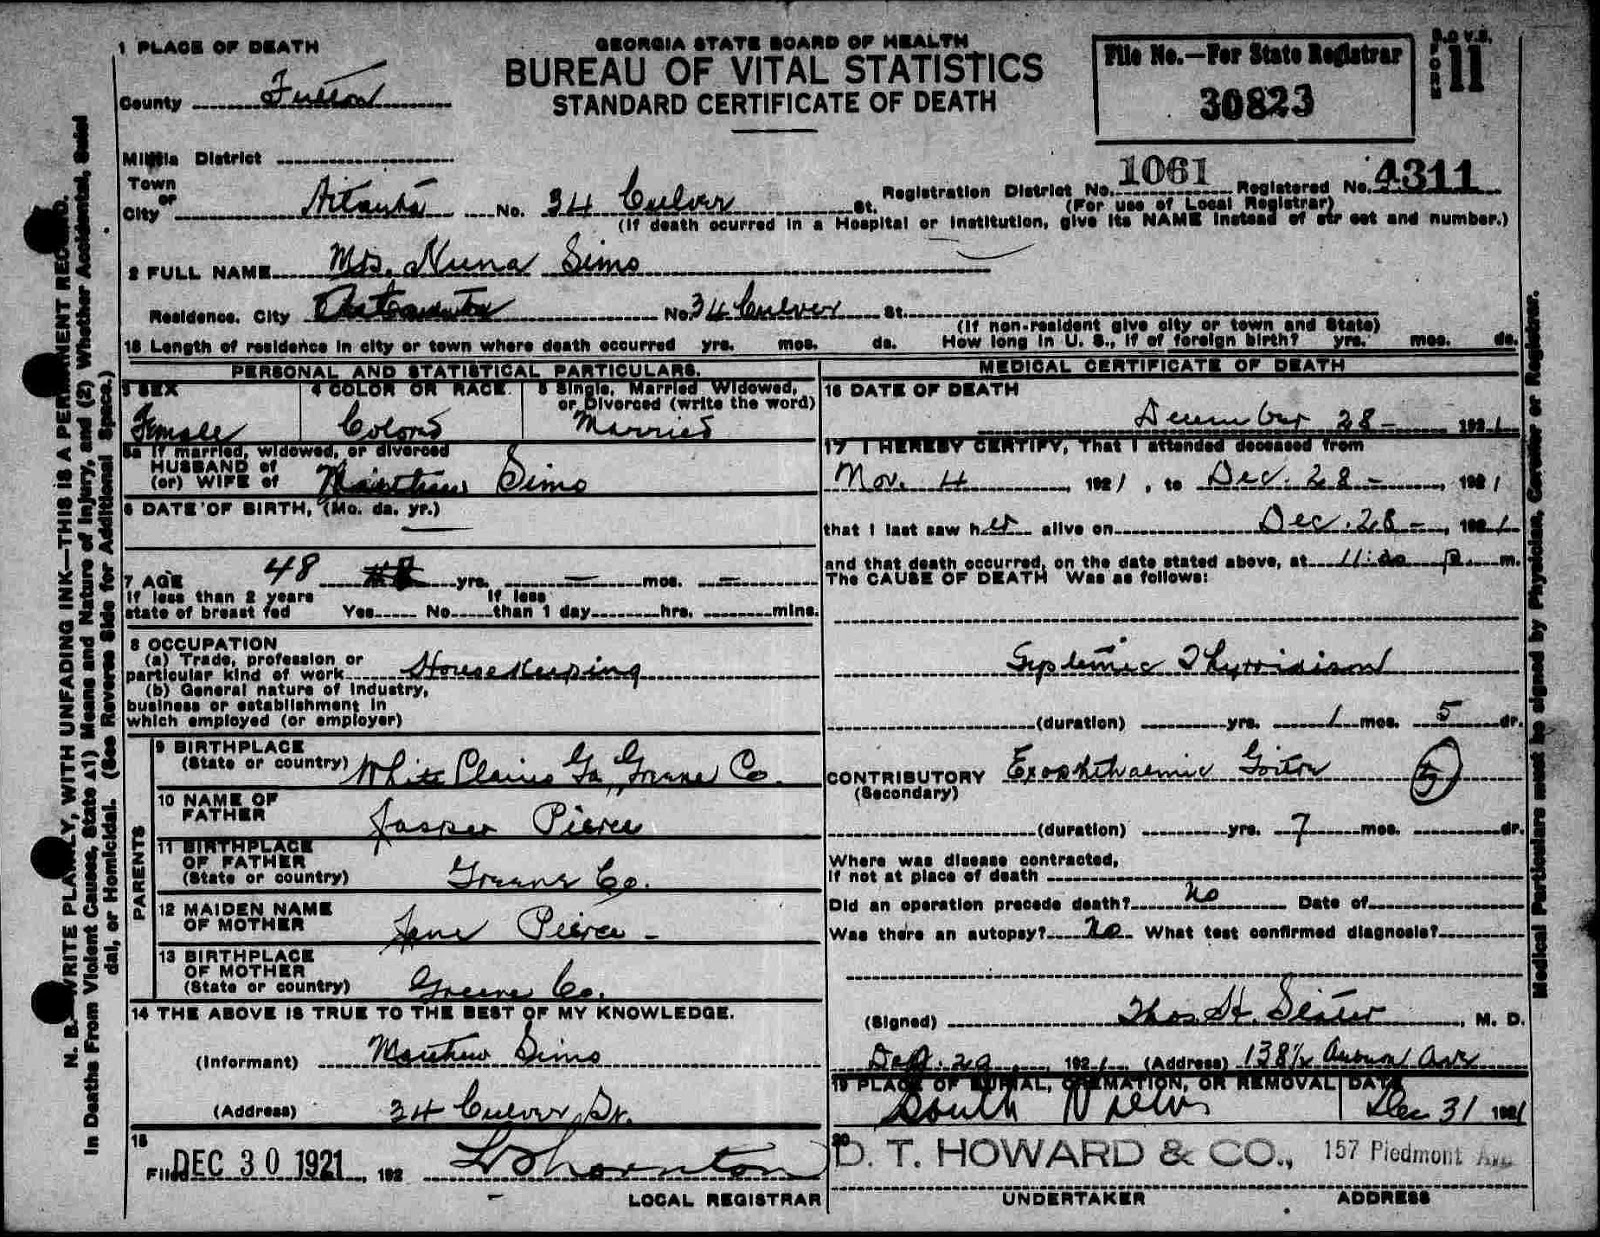 1 PLACE OF DEATH
GEORGIA STATE BOARD OF HEALTH
BUREAU OF VITAL STATISTICS
STANDARD CERTIFICATE OF DEATH
File No.—For State Registrar
30823
FORM 11
County Fulton
Militia District
Town or City Atlanta No. 34 Culver St.
Registration District No. 1061 Registered No. 4311
(For use of Local Registrar)
(If death ocurred in a Hospital or Institution, give its NAME instead of str eet and number.)
2 FULL NAME Mrs. Nuna Sims
Residence. City No. 34 Culver St.
(If non-resident give city or town and State)
18 Length of residence in city or town where death occurred yrs. mos. ds. How long in U. S., if of foreign birth? yrs. mos. ds.
PERSONAL AND STATISTICAL PARTICULARS.
3 SEX
Female
4 COLOR OR RACE
Colored
5 Single, Married Widowed,
or Divorced (write the word)
Married
5a If married, widowed, or divorced
HUSBAND of
(or) WIFE of Matthew Sims
6 DATE OF BIRTH, (Mo. da. yr.)
7 AGE 48 yrs. — mos. —
If less than 2 years If less
state of breast fed Yes No than 1 day hrs. mins.
8 OCCUPATION
(a) Trade, profession or
particular kind of work House Keeping
(b) General nature of Industry,
business or establishment in
which employed (or employer)
9 BIRTHPLACE
(State or country) White Plains Ga, Greene Co.
PARENTS
10 NAME OF
FATHER Jasper Pierce
11 BIRTHPLACE
OF FATHER
(State or country) Greene Co.
12 MAIDEN NAME
OF MOTHER Jane Pierce -
13 BIRTHPLACE
OF MOTHER
(State or country) Greene Co.
14 THE ABOVE IS TRUE TO THE BEST OF MY KNOWLEDGE.
(Informant) Matthew Sims
(Address) 34 Culver St.
15
Filed DEC 30 1921, 192 Thornton
LOCAL REGISTRAR
MEDICAL CERTIFICATE OF DEATH
16 DATE OF DEATH
December 28- 1921
17 I HEREBY CERTIFY, That I attended deceased from
Nov. 4, 1921, to Dec. 28-, 1921
that I last saw her alive on Dec. 28-, 1921
and that death occurred, on the date stated above, at 11:00 P m.
The CAUSE OF DEATH Was as follows:
Systemic Thyroidism
(duration) yrs. 1 mos. 5 ds.
CONTRIBUTORY Exophthalmic Goiter
(Secondary)
(duration) yrs. 7 mos. ds.
Where was disease contracted,
If not at place of death
Did an operation precede death? No Date of
Was there an autopsy? No What test confirmed diagnosis?
(Signed) Thos. H. Slater, M. D.
1921 (Address) 138½ Auburn Ave
19 PLACE OF BURIAL, CREMATION, OR REMOVAL DATE
South View Dec 31 1921
20
D. T. HOWARD & CO., 157 Piedmont Ave
UNDERTAKER ADDRESS
N. B.—WRITE PLAINLY, WITH UNFADING INK—THIS IS A PERMANENT RECORD.
In Deaths From Violent Causes, State (1) Means and Nature of Injury, and (2) Whether Accidental, Suici
dal, or Homicidal. (See Reverse Side for Additional Space.)
Medical Particulars must be signed by Physician, Coroner or Registrar.